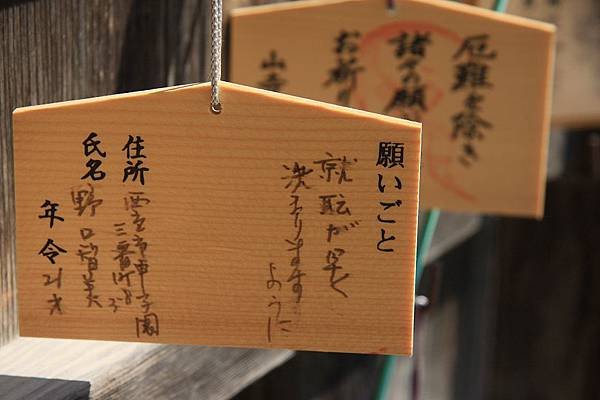 願いごと
就転が早く
決まりますように
住所 西宮市甲子園
三番町8-
氏名 野口智美
年令 21才
厄難を除き
諸々の願
お祈り
山寺